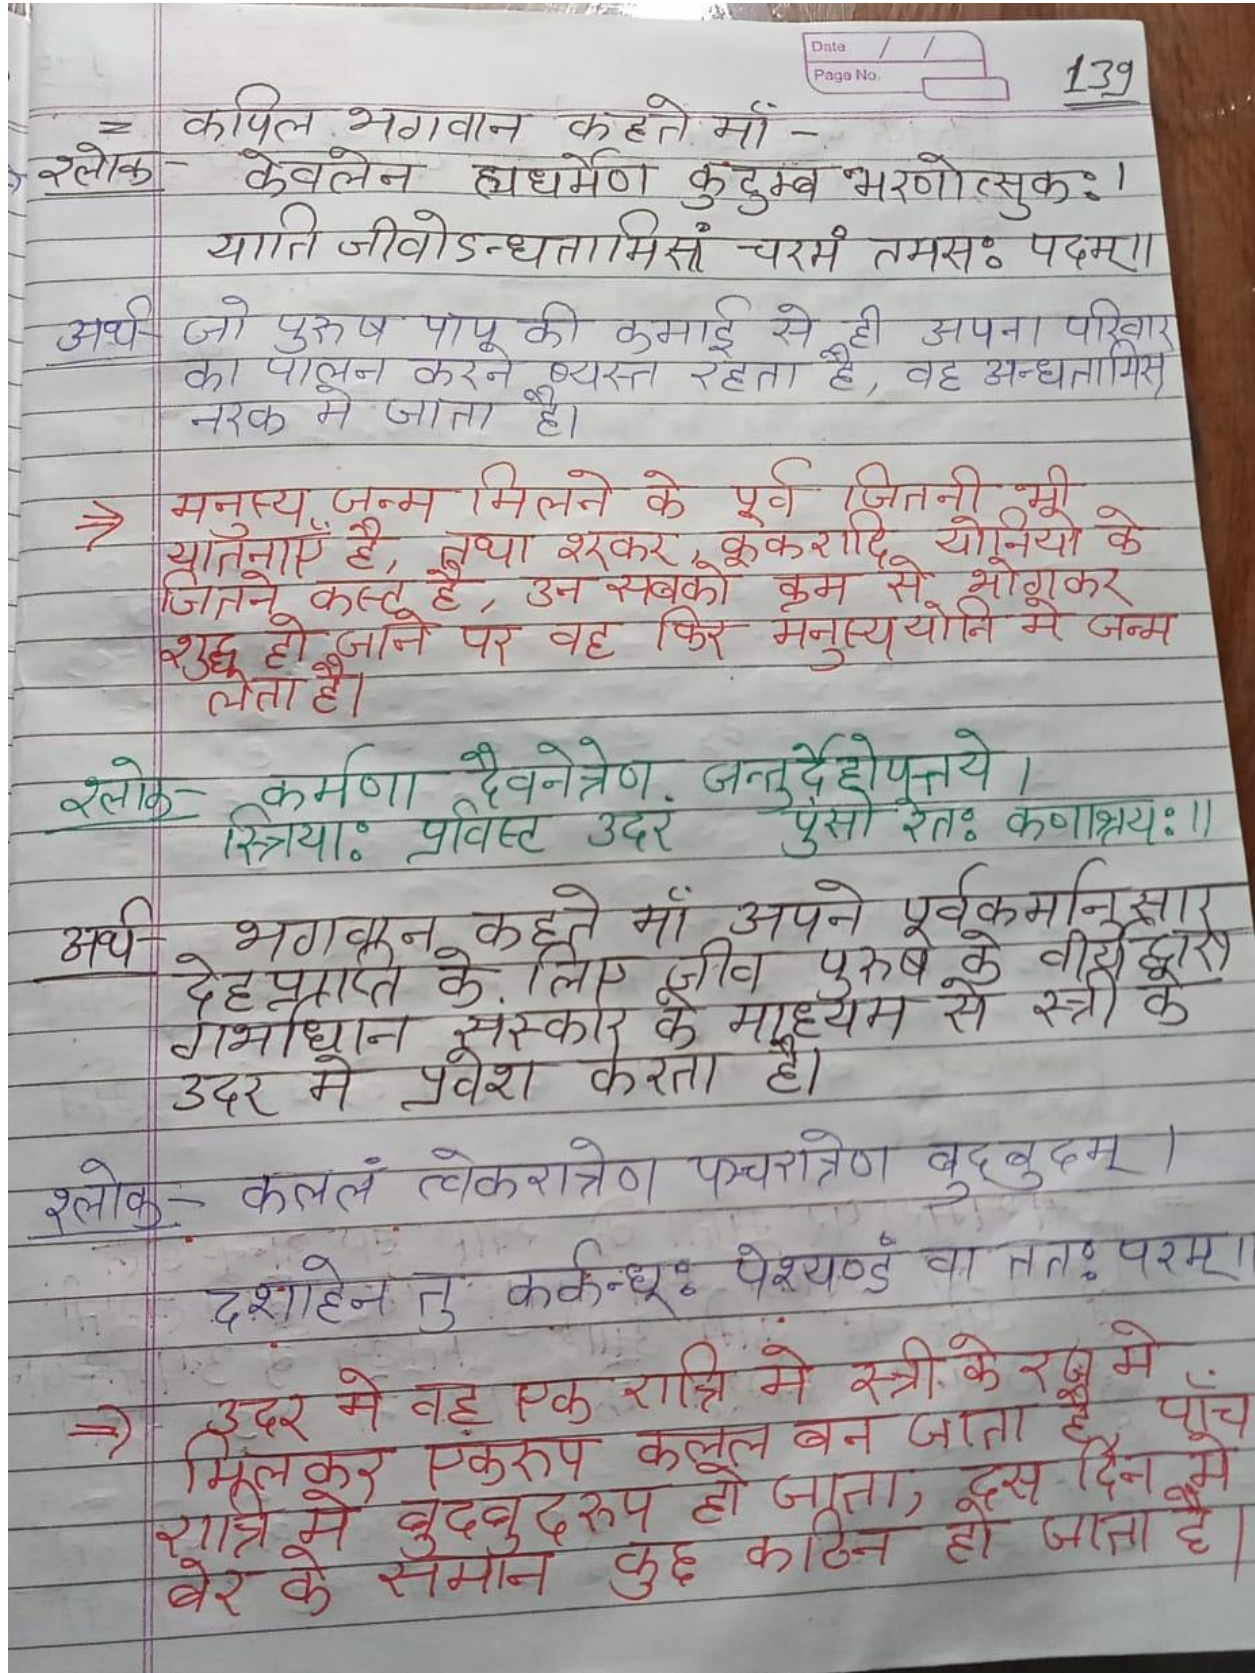 Date / /
Page No.
139
= कपिल भगवान कहते माँ -
श्लोक - केवलेन ह्यधर्मेण कुटुम्ब भरणोत्सुकः।
याति जीवोऽन्धतामिस्रं चरमं तमसः पदम्॥
अर्थ - जो पुरुष पाप की कमाई से ही अपना परिवार
का पालन करने व्यस्त रहता है, वह अन्धतामिस्र
नरक मे जाता है।
⇒ मनुस्य जन्म मिलने के पूर्व जितनी भी
यातनाएँ है, तथा शूकर, कूकरादि योनियो के
जितने कस्ट है, उन सबको क्रम से भोगकर
शुद्ध हो जाने पर वह फिर मनुस्ययोनि मे जन्म
लेता है।
श्लोक - कर्मणा दैवनेत्रेण जन्तुर्देहोपत्तये।
स्त्रियाः प्रविस्ट उदर पुंसो रेतः कणाश्रयः॥
अर्थ - भगवान कहते माँ अपने पूर्वकर्मानुसार
देहप्राप्ति के लिए जीव पुरुष के वीर्य द्वारा
गर्भाधान संस्कार के माध्यम से स्त्री के
उदर मे प्रवेश करता है।
श्लोक - कललं त्वेकरात्रेण पञ्चरात्रेण बुदबुदम्।
दशाहेन तु कर्कन्धूः पेश्यण्डं वा ततः परम्।
⇒ उदर मे वह एक रात्रि मे स्त्री के रज मे
मिलकर एकरुप कलल बन जाता है, पाँच
रात्रि मे बुदबुदरुप हो जाता, दस दिन मे
बेर के समान कुछ कठिन हो जाता है।